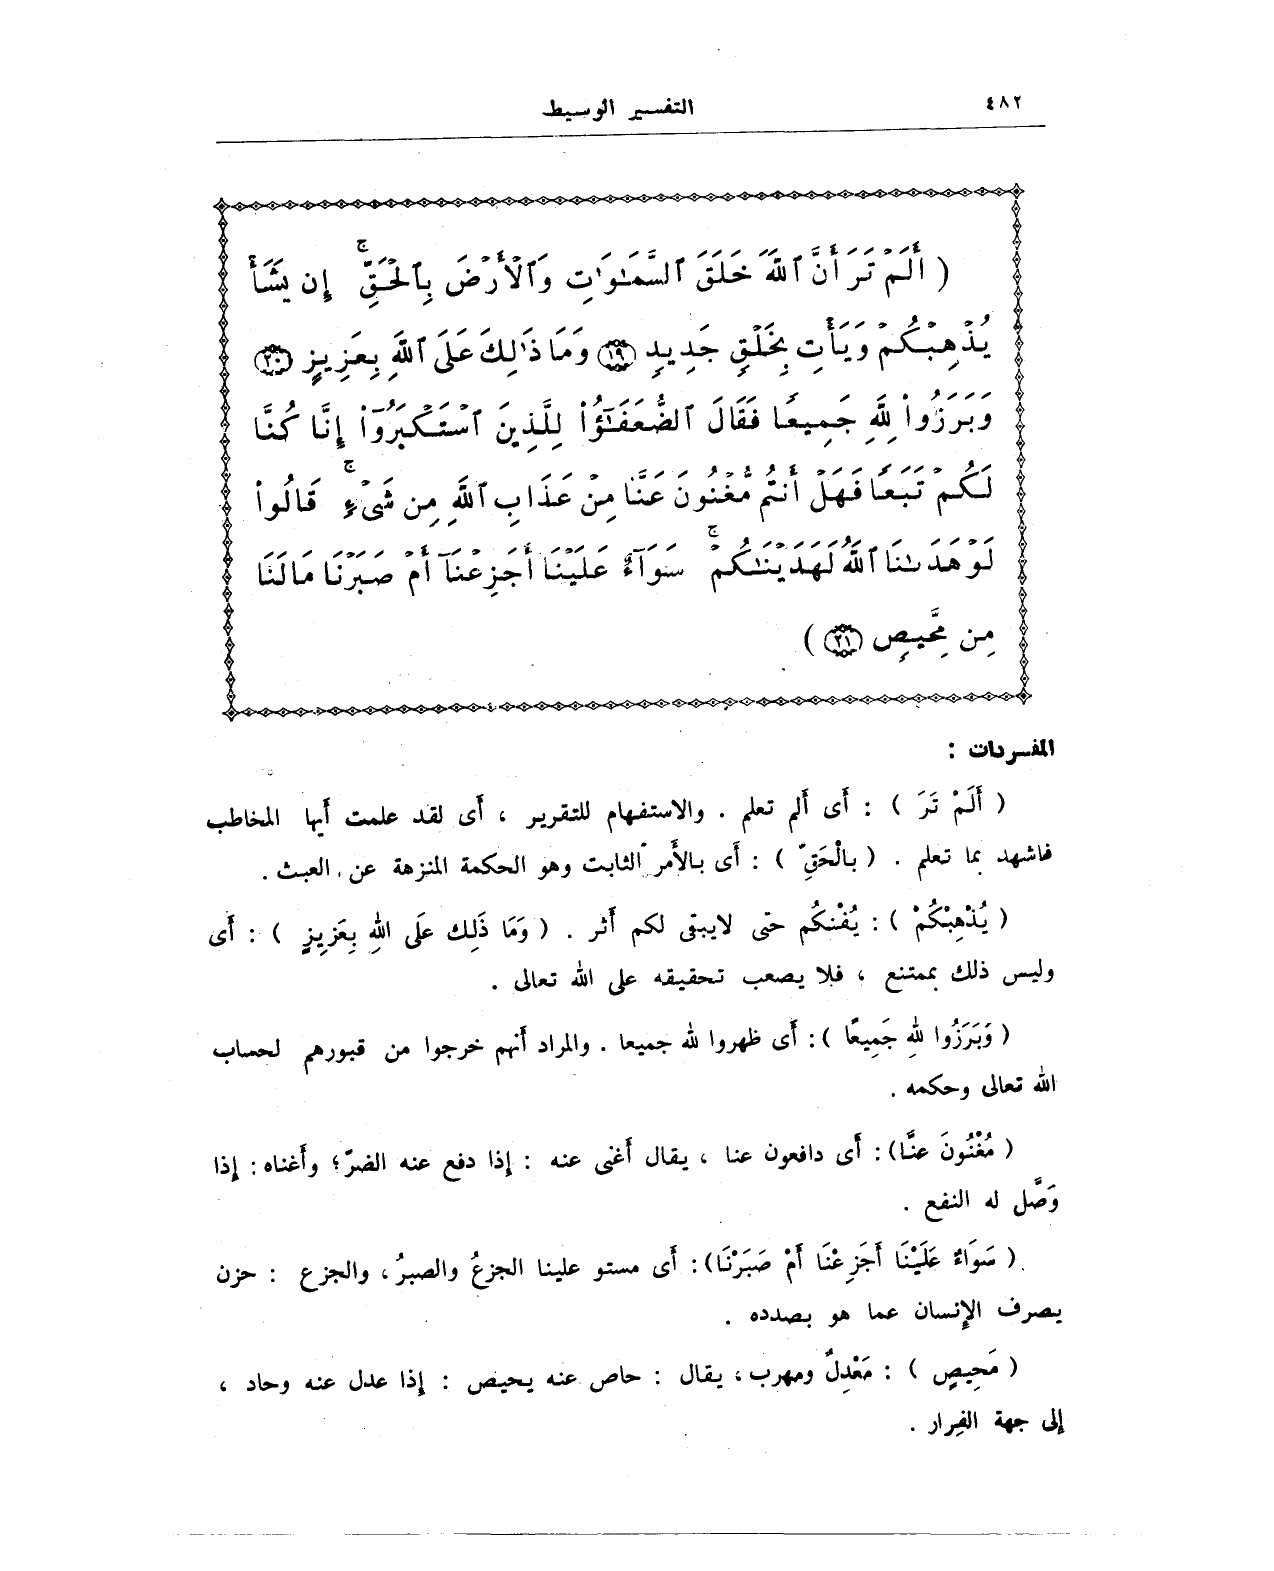 ٤٨٢
التفسير الوسيط
( أَلَمْ تَرَ أَنَّ ٱللَّهَ خَلَقَ ٱلسَّمَـٰوَٰتِ وَٱلْأَرْضَ بِٱلْحَقِّ ۚ إِن يَشَأْ
يُذْهِبْكُمْ وَيَأْتِ بِخَلْقٍ جَدِيدٍ ١٩ وَمَا ذَٰلِكَ عَلَى ٱللَّهِ بِعَزِيزٍ ٢٠
وَبَرَزُوا۟ لِلَّهِ جَمِيعًا فَقَالَ ٱلضُّعَفَـٰٓؤُا۟ لِلَّذِينَ ٱسْتَكْبَرُوٓا۟ إِنَّا كُنَّا
لَكُمْ تَبَعًا فَهَلْ أَنتُم مُّغْنُونَ عَنَّا مِنْ عَذَابِ ٱللَّهِ مِن شَىْءٍ ۚ قَالُوا۟
لَوْ هَدَىٰنَا ٱللَّهُ لَهَدَيْنَـٰكُمْ ۚ سَوَآءٌ عَلَيْنَآ أَجَزِعْنَآ أَمْ صَبَرْنَا مَا لَنَا
مِن مَّحِيصٍ ٢١ )
المفسردات :
( أَلَمْ تَرَ ) : أَى ألم تعلم . والاستفهام للتقرير ، أَى لقد علمت أَيها المخاطب
فاشهد بما تعلم . ( بالْحَقِّ ) : أَى بالأَمر الثابت وهو الحكمة المنزهة عن العبث .
( يُذْهِبْكُمْ ) : يُفْنكُم حتى لايبقى لكم أَثر . ( وَمَا ذَلِك عَلَى اللهِ بِعَزِيزٍ ) : أَى
وليس ذلك بممتنع ، فلا يصعب تحقيقه على الله تعالى .
( وَبَرَزُوا للهِ جَمِيعًا ) : أَى ظهروا لله جميعا . والمراد أَنهم خرجوا من قبورهم لحساب
الله تعالى وحكمه .
( مُغْنُونَ عنَّا ) : أَى دافعون عنا ، يقال أَغنى عنه : إِذا دفع عنه الضرّ ؛ وأَغناه : إِذا
وَصَّل له النفع .
( سَوَاءٌ عَلَيْنَا أَجَزِعْنَا أَمْ صَبَرْنَا ) : أَى مستو علينا الجزعُ والصبرُ ، والجزع : حزن
يصرف الإِنسان عما هو بصدده .
( مَحِيصٍ ) : مَعْدِلٌ ومهرب ، يقال : حاص عنه يحيص : إِذا عدل عنه وحاد ،
إِلى جهة الفِرار .